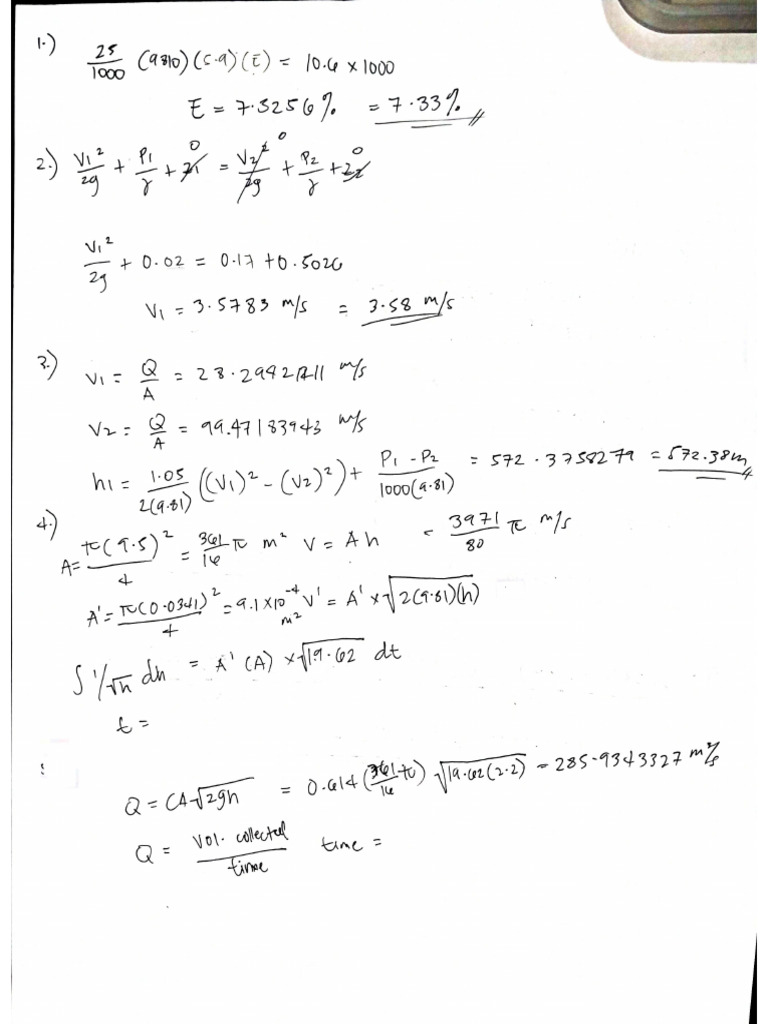 1.) 25/1000 (9810)(5.9)(E) = 10.6 x 1000
E = 7.3256% = 7.33%
2.) V1²/2g + P1/γ + z1 0 = V2²/2g 0 + P2/γ + z2 0
V1²/2g + 0.02 = 0.17 + 0.5026
V1 = 3.5783 m/s = 3.58 m/s
3.) V1 = Q/A = 28.29421211 m/s
V2 = Q/A = 99.47183943 m/s
h1 = 1.05/2(9.81) ((V1)² - (V2)²) + P1 - P2/1000(9.81) = 572.3758279 = 572.38m
4.) A = π(9.5)²/4 = 361/16 π m² V = Ah = 3971/80 π m/s
A' = π(0.0341)²/4 = 9.1x10⁻⁴ m² V' = A' x √2(9.81)(h)
∫ 1/√h dh = A'(A) x √19.62 dt
t =
:
Q = CA√2gh = 0.614 (361/16 π) √19.62(2.2) = 285.9343327
Q = Vol. collected/time time =